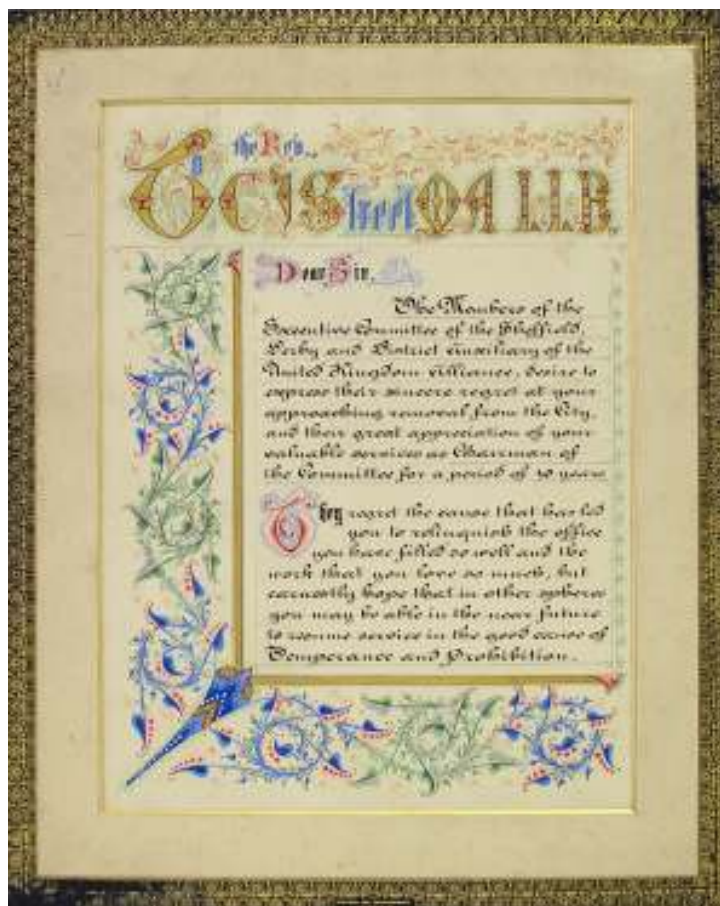 To the Rev.
C J Street M A L L B.
Dear Sir,
The Members of the
Executive Committee of the Sheffield,
Derby and District Auxiliary of the
United Kingdom Alliance, desire to
express their sincere regret at your
approaching removal from the City,
and their great appreciation of your
valuable services as Chairman of
the Committee for a period of 10 years
They regret the cause that has led
you to relinquish the office
you have filled so well and the
work that you love so much, but
earnestly hope that in other spheres
you may be able in the near future
to resume service in the good cause of
Temperance and Prohibition.